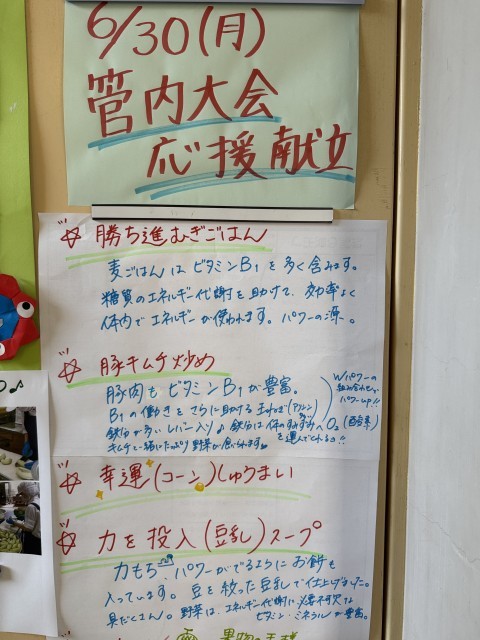 6/30(月)
管内大会
応援献立
☆ 勝ち進むぎごはん
麦ごはんはビタミンB1を多く含みます。
糖質のエネルギー代謝を助けて、効率よく
体内でエネルギーが使われます。パワーの源。
☆ 豚キムチ炒め
豚肉もビタミンB1が豊富。
B1の働きをさらに助ける玉ねぎ(アリシン)
鉄分が多いレバー入り♪鉄分は体のすみずみへO2(酸素)
を運んでくれるよ!!
キムチと一緒にたっぷり野菜が食べられます
Wパワーの
組み合わせで
パワーup!!
☆ 幸運(コーン)しゅうまい
☆ 力を投入(豆乳)スープ
力もち パワーがでるようにお餅も
入っています。豆を絞った豆乳で仕上げました。
具だくさん。野菜は、エネルギー代謝に必要不可欠な
ビタミン・ミネラルが豊富。